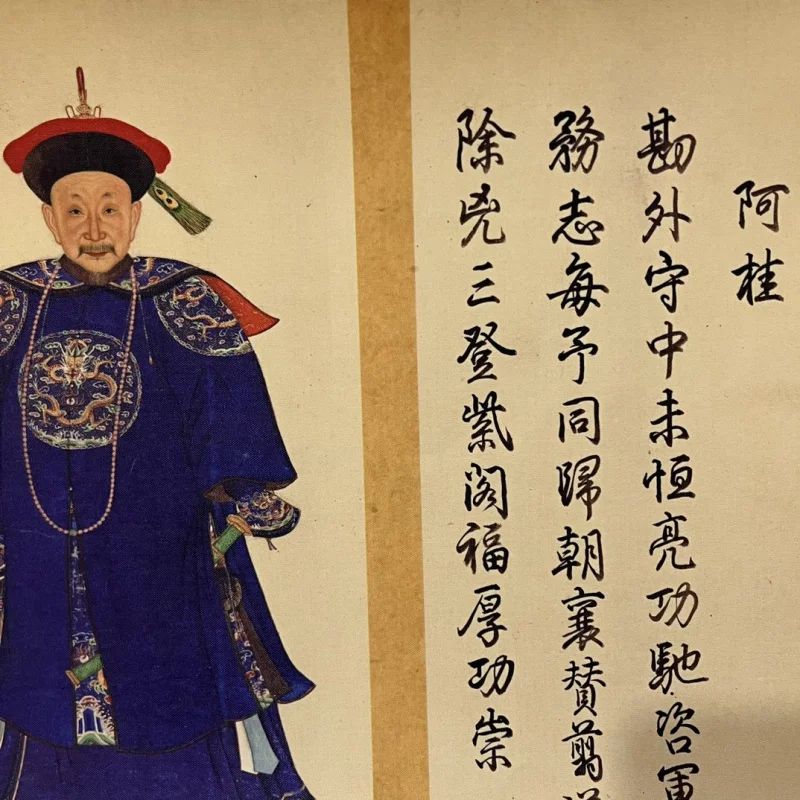 阿桂
勘外守中未恒亮功馳咨軍
務志每予同歸朝襄贊翦
除兇三登紫閣福厚功崇